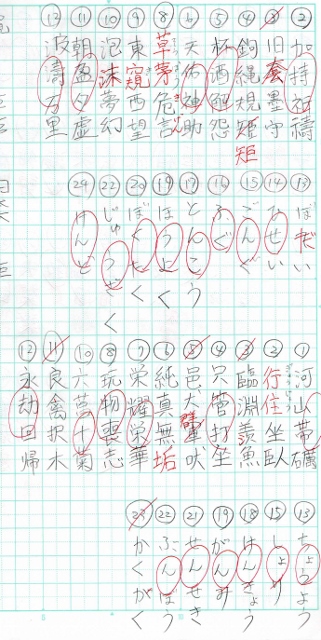 ② 加持祈禱
③ 旧套墨守
④ 鉤縄規矩 矩
⑤ 杯酒解怨
⑥ 天佑神助
⑧ 草茅危言
⑨ 東窺西望
⑩ 泡沫夢幻
⑪ 朝盈夕虚
⑫ 波濤万里
⑬ ぼだい
⑭ ひせい
⑮ ごんぐ
⑯ ふぐ
⑰ とんこう
⑲ ほうよく
⑳ ぼくたく
㉒ じゅうさく
㉔ けんど
① 河山帯礪
② 行住坐臥
③ 臨淵羨魚
④ 只管打坐
⑤ 邑犬群吠
⑥ 純真無垢
⑦ 栄耀栄華
⑧ 玩物喪志
⑩ 六菖十菊
⑪ 良禽択木
⑫ 永劫回帰
⑬ ちょうよう
⑮ しょり
⑱ けんきょう
⑲ がんみ
㉑ せんせき
㉒ ぶんぽう
㉓ かくがく